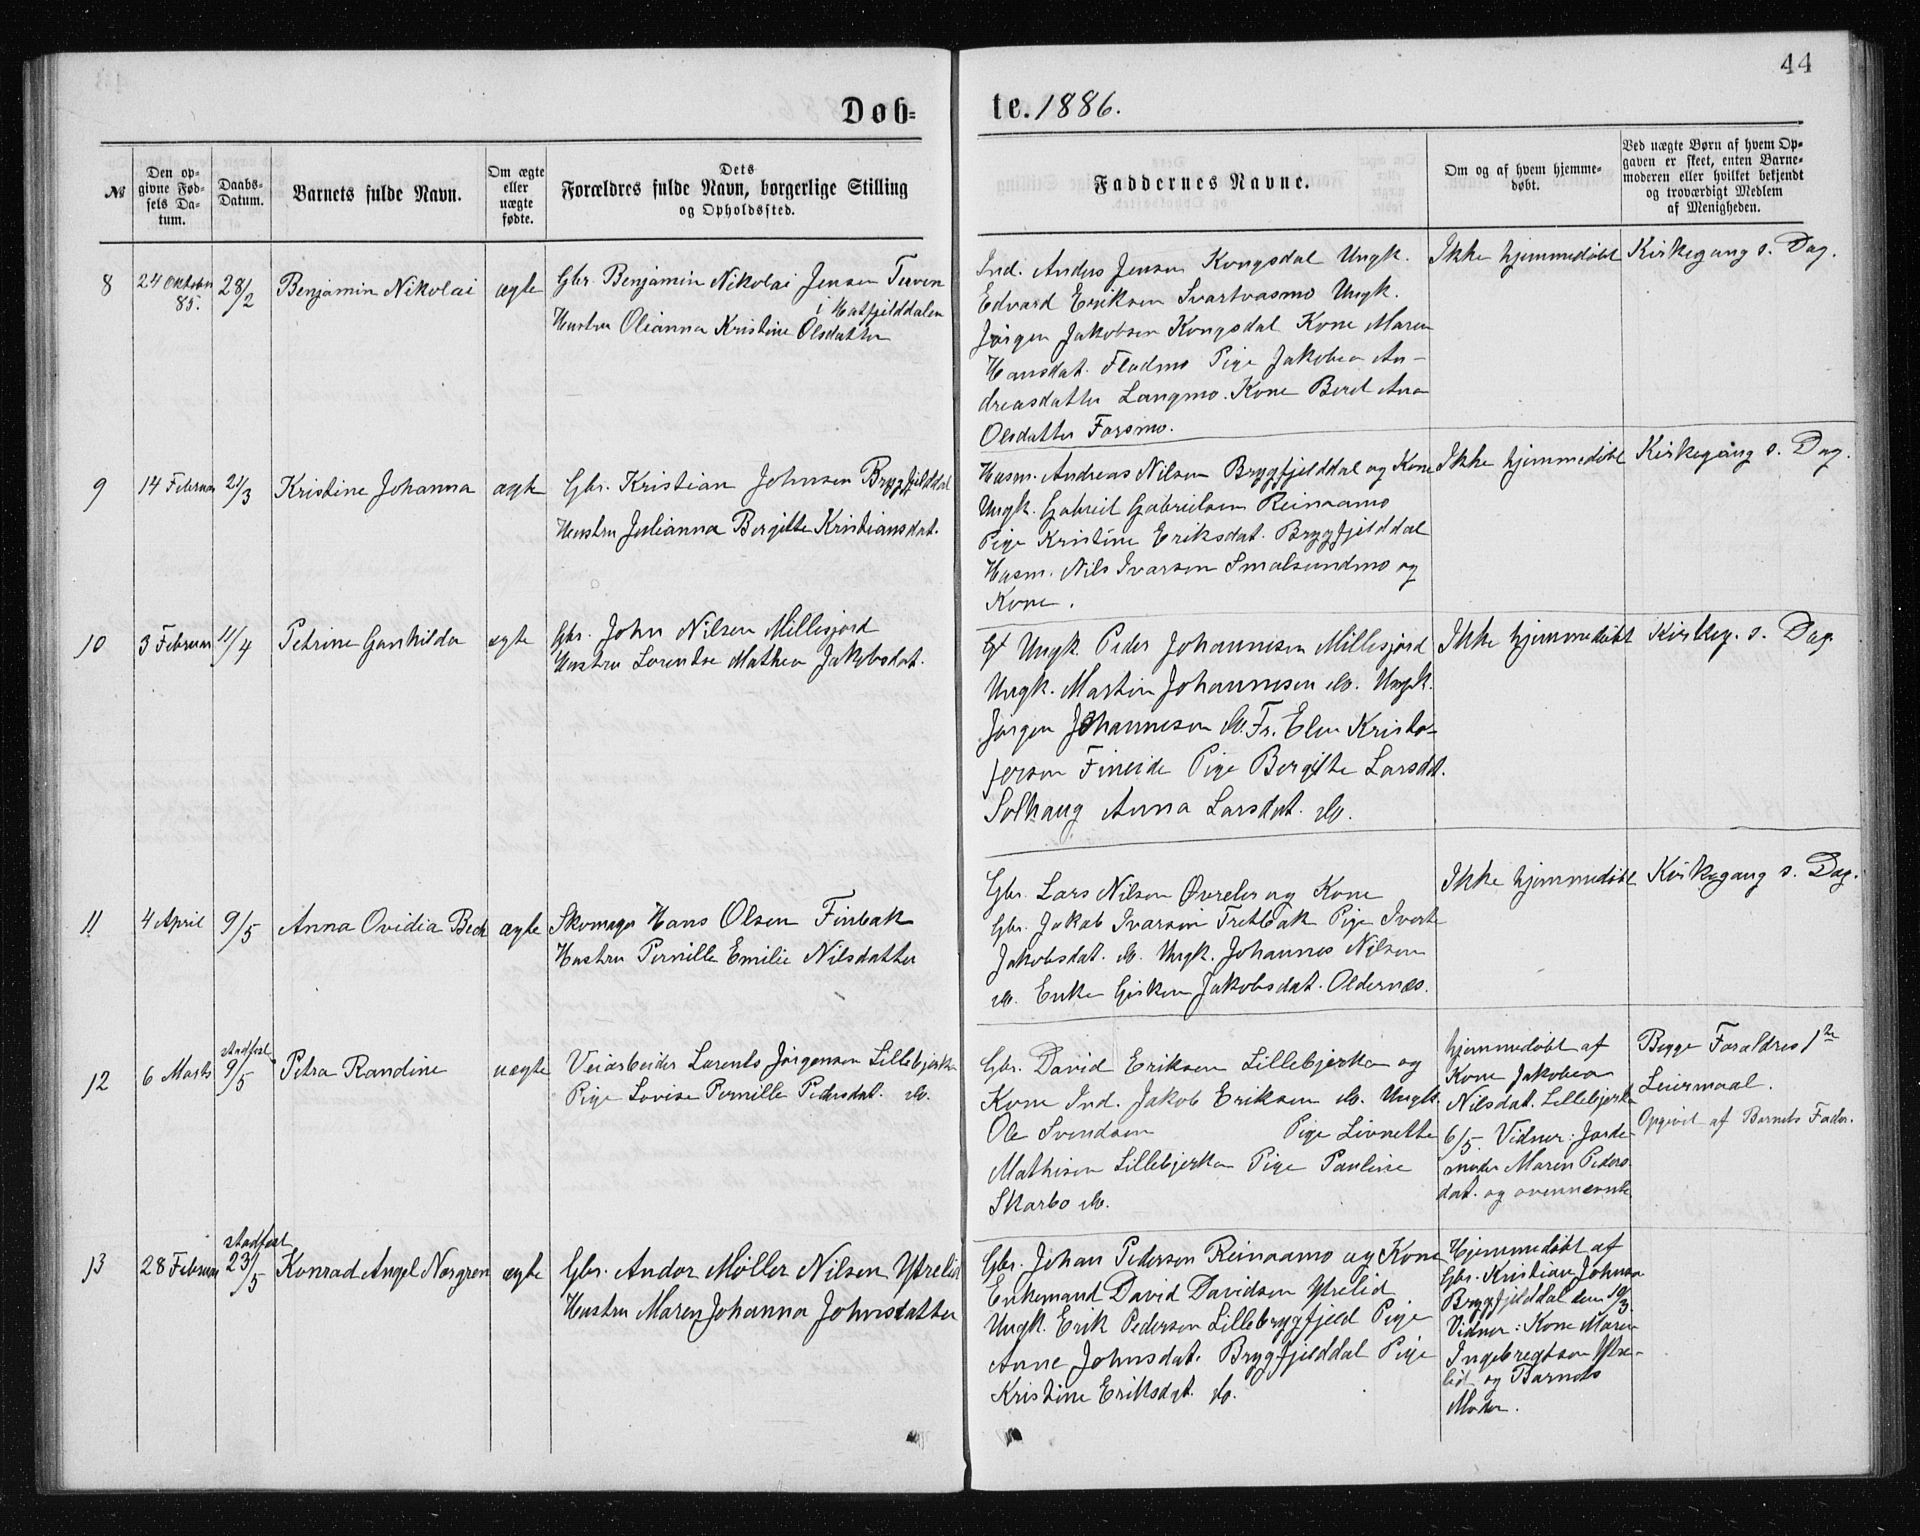 44
Døb=
te. 1886.
№
Den op-
givne Fød-
sels Da-
tum.
Daabs-
Datum.
Barnets fulde Navn.
Om ægte
eller
uægte
fødte.
Dets
Forældres fulde Navn, borgerlige Stilling
og Opholdssted.
Faddernes Navne.
Om og af hvem hjemme-
døbt.
Ved uægte Børn af hvem Op-
gaven er skeet, enten Barne-
moderen eller hvilket bekjendt
og troværdigt Medlem
af Menigheden.
8
24 Oktober
85.
28/2
Benjamin Nikolai
ægte
Gbr. Benjamin Nikolai Jensen
i Hatfjelddalen
Hustru Olianna Kristine Olsdatter
Ind. Anders Jensen Kongsdal Ungk.
Edvard Eriksen Svartvasmo Ungk.
Jørgen Jakobsen Kongsdal Kone Maren
Hansdat. Flodmo Pige Jakobea An-
dreasdatter Langmo. Kone Beret Ana
Olsdatter Forsmo.
Ikke hjemmedøbt
Kirkegang s. Dag.
9
14 Februar
21/3
Kristine Johanna
ægte
Gbr. Kristian Johnsen Brygfjelddal
Hustru Julianna Bergitte Kristiansdat.
Husm. Andreas Nilsen Brygfjelddal og Kone
Ungk. Gabriel Gabrielsen Reinaamo
Pige Kristine Eriksdat. Brygfjelddal
Husm. Nils Ivarsen Smalsundmo og
Kone.
Ikke hjemmedøbt
Kirkegang s. Dag.
10
3 Februar
11/4
Petrine Gunhilda
ægte
Gbr. John Nilsen Millisjord
Hustru Lorentse Mathea Jakobsdat.
Ungk. Peder Johannesen Millisjord
Ungk. Martin Johannesen do. Ungk.
Jørgen Johannesen do. Fr. Elen Kristo-
fersen Fineide Pige Bergitte Larsdat.
Solhaug Anna Larsdat. do.
Ikke hjemmedøbt
Kirkeg. s. Dag.
11
4 April
9/5
Anna Ovidia Beck
ægte
Skomager Hans Olsen Finbak
Hustru Pernille Emilie Nilsdatter
Gbr. Lars Nilsen Øvrelid og Kone
Gbr. Jakob Ivarsen Tretbak Pige
Jakobsdat. do. Ungk. Johannes Nilsen
do. Enke Gisken Jakobsdat. Oldernæs.
Ikke hjemmedøbt
Kirkegang s. Dag.
12
6 Marts
stadfest.
9/5
Petra Randine
uægte
Veiarbeider Lorents Jørgensen Lillebjerka
Pige Lovise Pernille Pedersdat. do.
Gbr. David Eriksen Lillebjerka og
Kone Ind. Jakob Eriksen do. Ungk.
Ole Svendsen Pige Livnette
Mathisen Lillebjerka Pige Pauline
Skarbo do.
hjemmedøbt af
Kone Jakobea
Nilsdat. Lillebjerka
6/5. Vidner: Jorde-
moder Maren Peders-
dat. og ovennævnte
Begge Forældres 1ste
Leiermaal.
Opgivet af Barnets Fader.
13
28 Februar
stadfest
23/5
Konrad Angel Norgren
ægte
Gbr. Andor Møller Nilsen Ytrelid
Hustru Maren Johanna Johnsdatter
Gbr. Johan Pedersen Reinaamo og Kone
Enkemand David Davidsen Ytrelid
Ungk. Erik Pedersen Lillebrygfjeld Pige
Anne Johnsdat. Brygfjelddal Pige
Kristine Eriksdat. do.
Hjemmedøbt af
Gbr. Kristian Johnsen
Brygfjelddal den 19/3.
Vidner: Kone Maren
Ingebregtsen Ytre-
lid og Barnets
Moder.